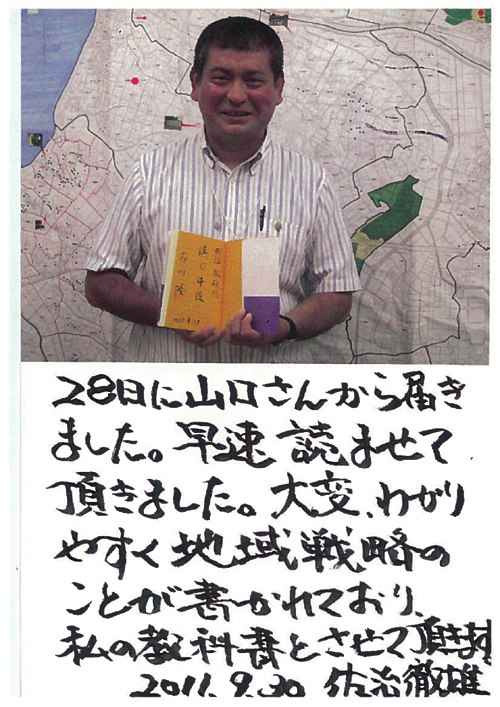 28日に山口さんから届き
ました。早速読ませて
頂きました。大変、わかり
やすく地域戦略の
ことが書かれており、
私の教科書とさせて頂きます
2011.9.30 佐治徹雄